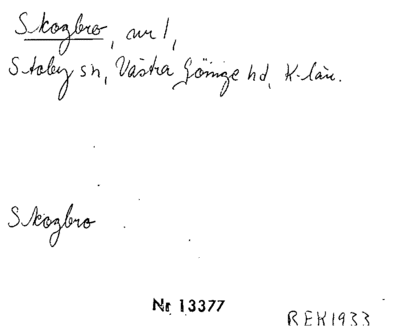 Skogbro, nr 1,
Stoby sn, Västra Göinge hd, K-län.
Skogbro
Nr 13377
REH1933